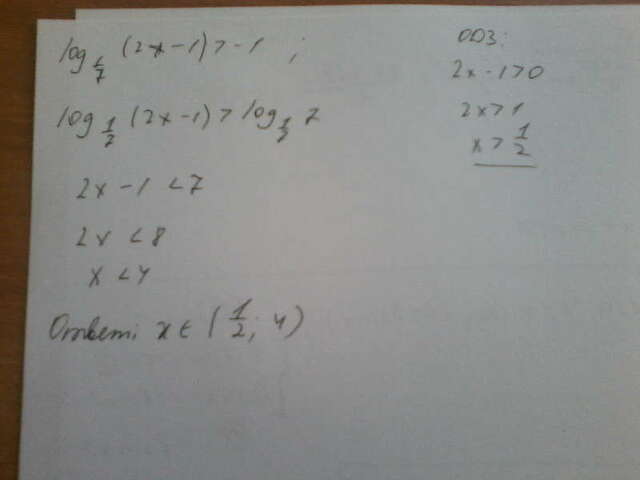 log_{1/7} (2x-1) > -1 ;
log_{1/7} (2x-1) > log_{1/7} 7
2x - 1 < 7
2x < 8
x < 4
Ответ: x ∈ (1/2; 4)
ОДЗ:
2x - 1 > 0
2x > 1
x > 1/2